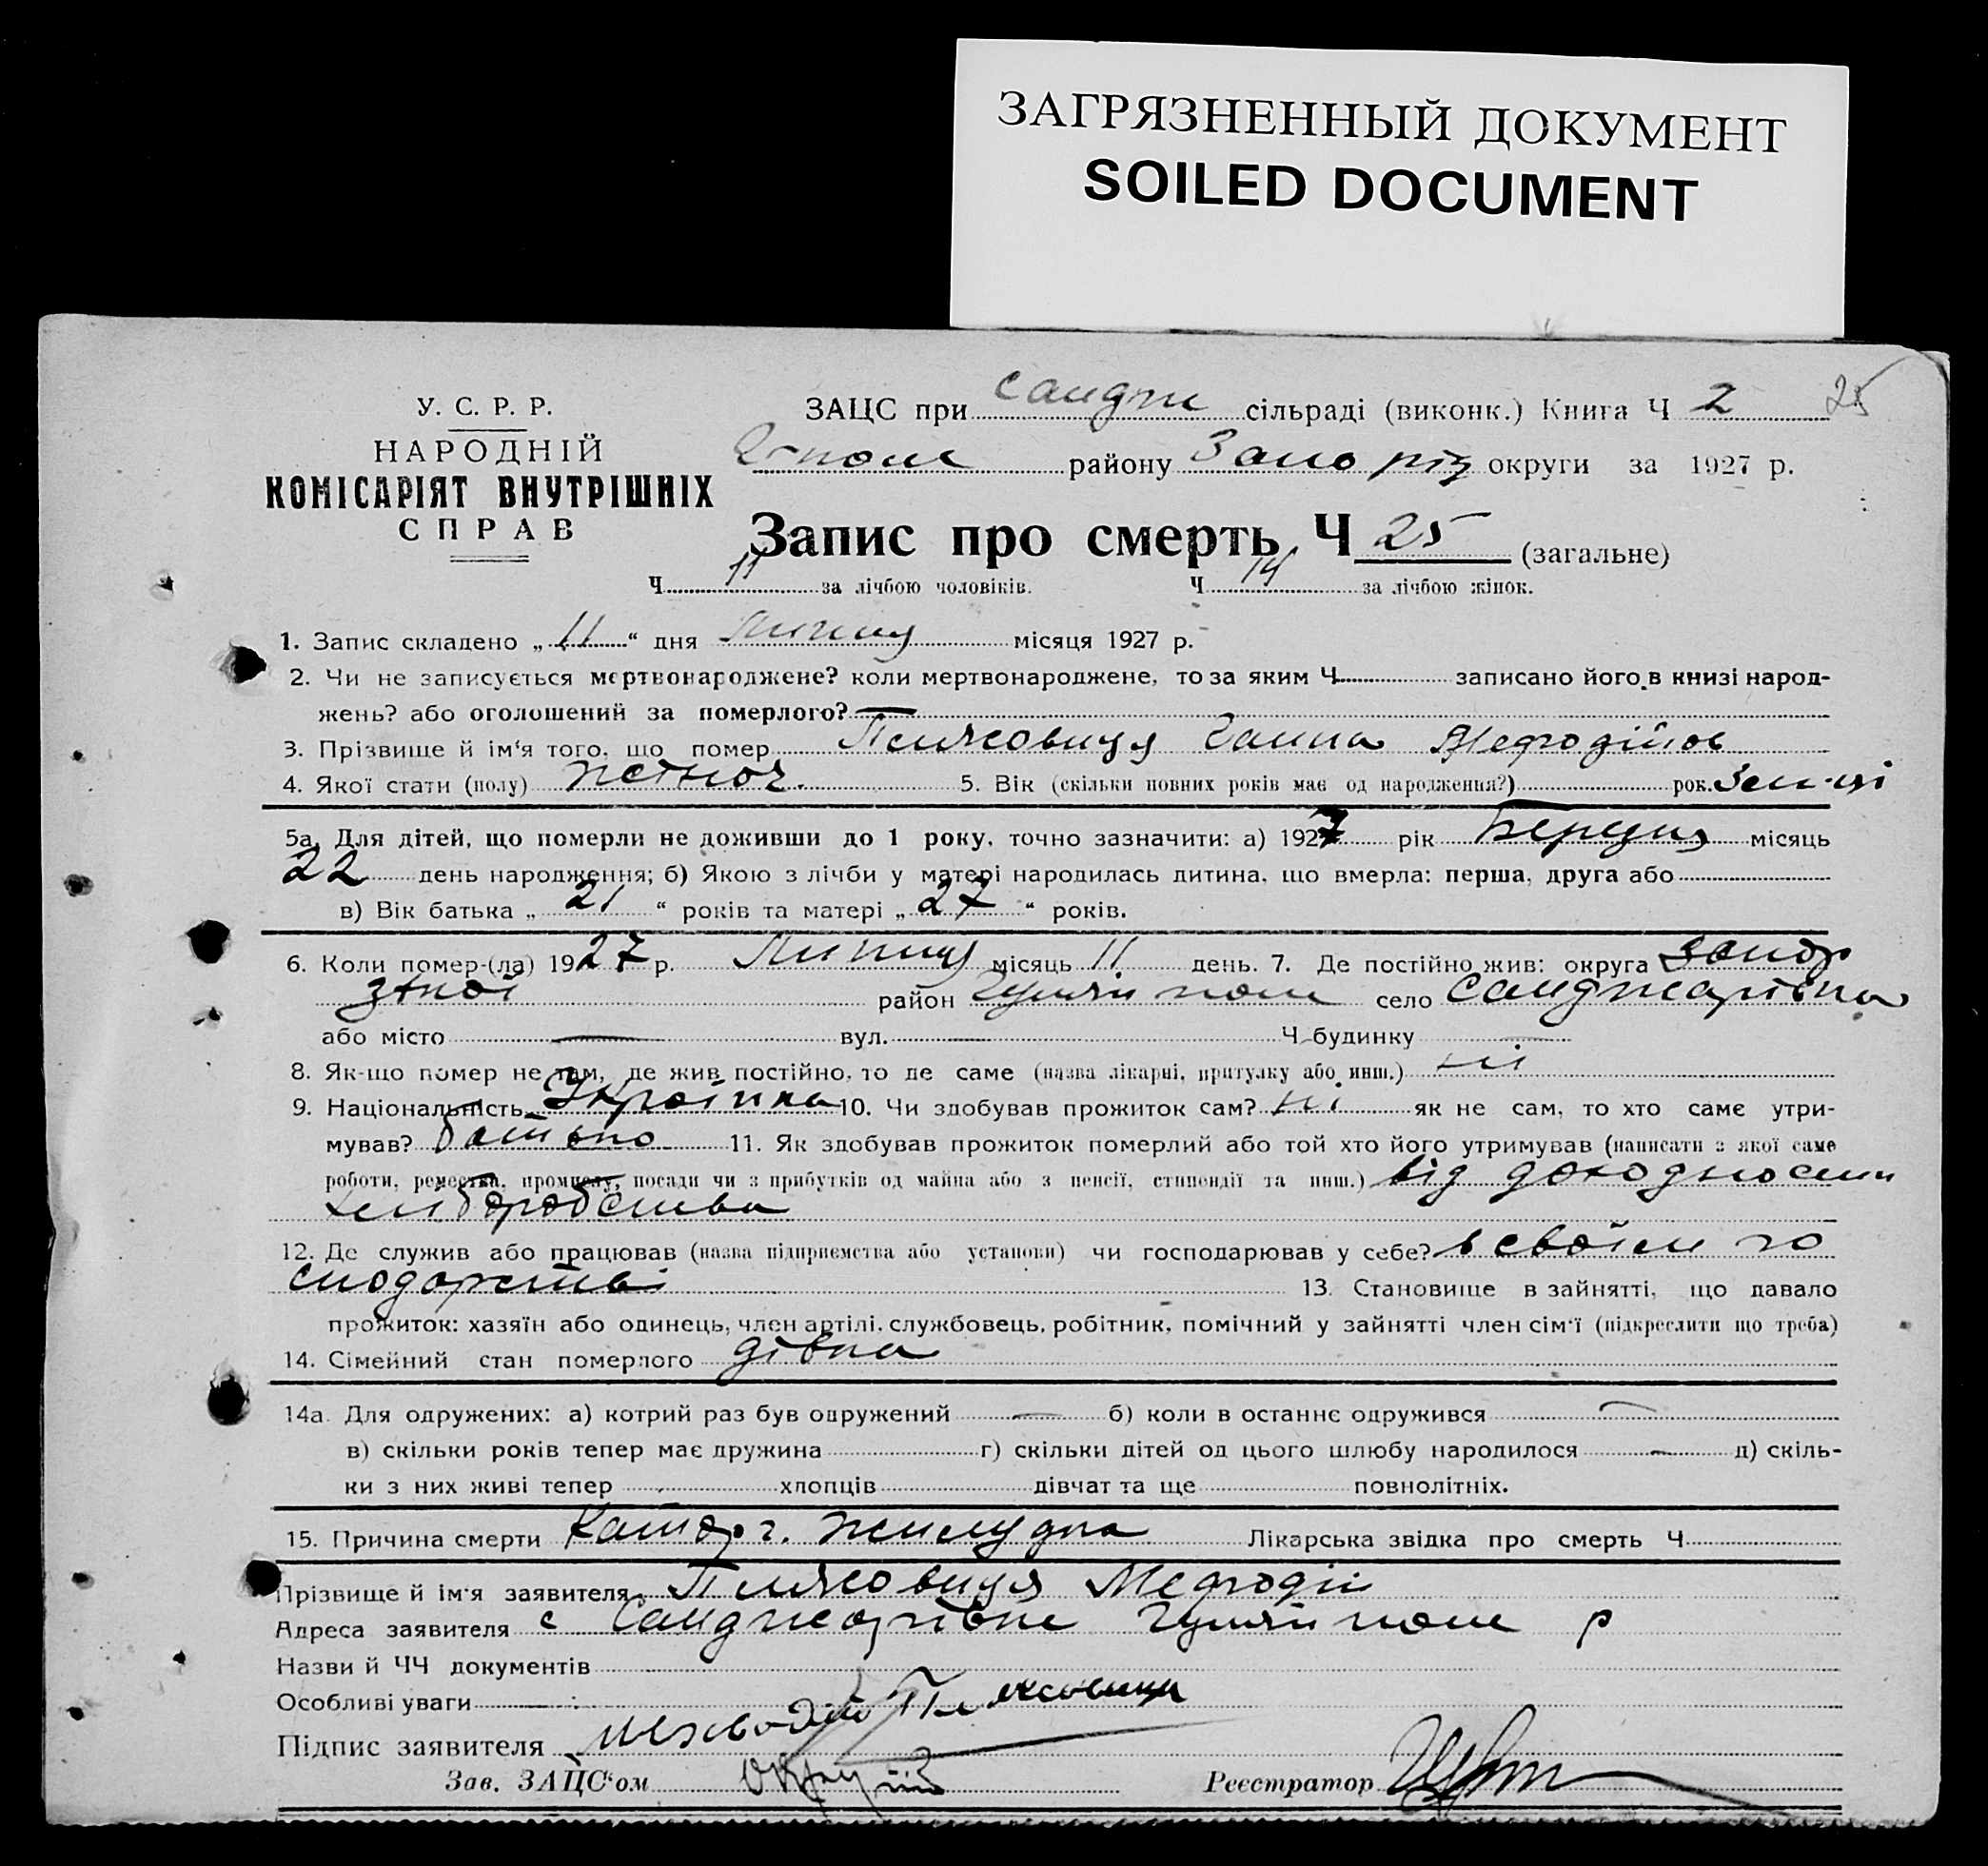 ЗАГРЯЗНЕННЫЙ ДОКУМЕНТ
SOILED DOCUMENT
У. С. Р. Р.
НАРОДНІЙ
КОМІСАРІЯТ ВНУТРІШНІХ
СПРАВ
ЗАЦС при Санджи сільраді (виконк.) Книга Ч 2 25
району Запоріз округи за 1927 р.
Запис про смерть Ч 25 (загальне)
Ч 11 за лічбою чоловіків. Ч 14 за лічбою жінок.
1. Запис складено „ 11 “ дня Липця місяця 1927 р.
2. Чи не записується мертвонароджене? коли мертвонароджене, то за яким Ч записано його в книзі народ-
жень? або оголошений за померлого? —
3. Прізвище й ім'я того, що помер Пляховиця Ганна Мефодійов
4. Якої стати (полу) жіноч. 5. Вік (скільки повних років має од народження?) рок. 3 м-ці
5а. Для дітей, що померли не доживши до 1 року, точно зазначити: а) 1927 рік Березня місяць
22 день народження; б) Якою з лічби у матері народилась дитина, що вмерла: перша, друга або
в) Вік батька „ 21 “ років та матері „ 27 “ років.
6. Коли помер-(ла) 1927 р. Липця місяць 11 день. 7. Де постійно жив: округа Запор
зької район Гуляйполе село Санджарівка
або місто — вул. — Ч будинку —
8. Як-що помер не там, де жив постійно, то де саме (назва лікарні, притулку або инш.) ні
9. Національність Українка 10. Чи здобував прожиток сам? ні як не сам, то хто саме утри-
мував? батько 11. Як здобував прожиток померлий або той хто його утримував (написати з якої саме
роботи, ремества, промислу, посади чи з прибутків од майна або з пенсії, стипендії та инш.) від доходности
хліборобства
12. Де служив або працював (назва підприємства або установи) чи господарював у себе? в своїм го
сподарстві 13. Становище в зайнятті, що давало
прожиток: хазяїн або одинець, член артілі, службовець, робітник, помічний у зайнятті член сім'ї (підкреслити що треба)
14. Сімейний стан померлого дівка
14а. Для одружених: а) котрий раз був одружений — б) коли в останнє одружився —
в) скільки років тепер має дружина г) скільки дітей од цього шлюбу народилося — д) скіль-
ки з них живі тепер хлопців дівчат та ще повнолітніх.
15. Причина смерти Катар. жилудка Лікарська звідка про смерть Ч
Прізвище й ім'я заявителя Пляховиця Мефодій
Адреса заявителя с Санджарівка Гуляйполе р
Назви й ЧЧ документів
Особливі уваги —
Підпис заявителя Пляховиця
Зав. ЗАЦС'ом Реєстратор